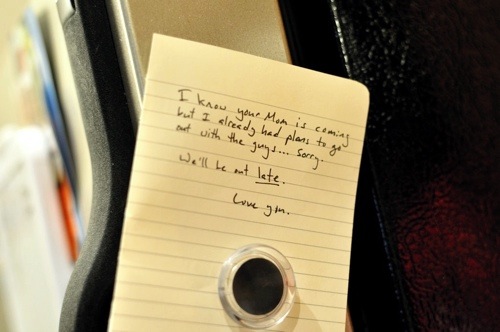 I know your Mom is coming
but I already had plans to go
out with the guys... Sorry.
We'll be out late.
Love you.